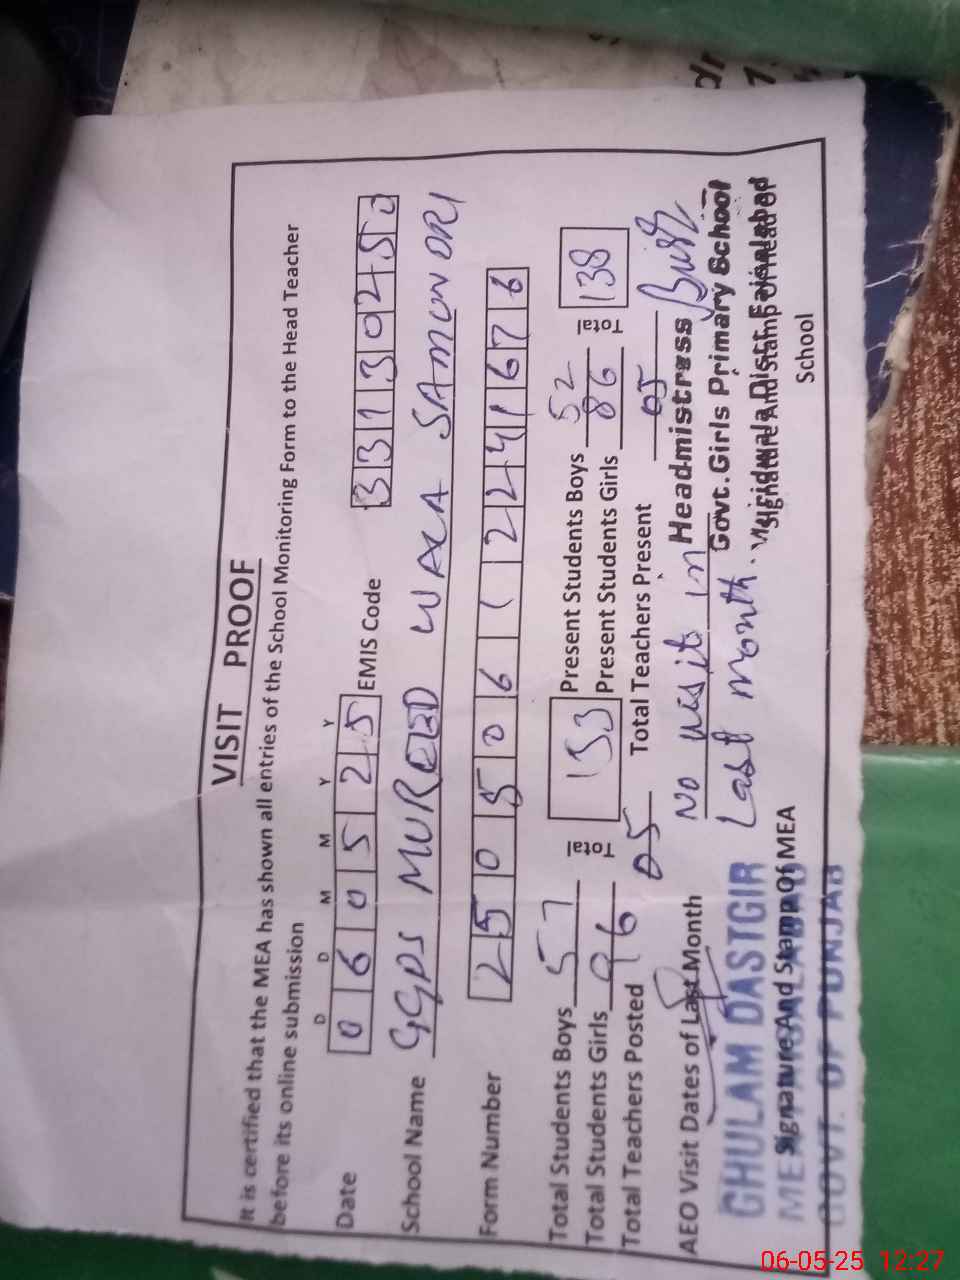 VISIT PROOF
It is certified that the MEA has shown all entries of the School Monitoring Form to the Head Teacher
before its online submission
D D M M Y Y
Date 0 6 0 5 2 5 EMIS Code 3 3 1 3 0 2 5 0
School Name GGPS MUREED WALA SAMUNDRI
Form Number 2 5 0 5 0 6 1 2 2 4 1 6 7 6
Total Students Boys 57 Total 153 Present Students Boys 52 Total 138
Total Students Girls 96 Present Students Girls 86
Total Teachers Posted 05 Total Teachers Present 05
AEO Visit Dates of Last Month No visit in
Last month.
Headmistress
Govt. Girls Primary School
Dist. Faisalabad
Signature And Stamp Of Head Of
School
GHULAM DASTGIR
Signature And Stamp Of MEA
MEA
GOVT. OF PUNJAB
06-05-25 12:27